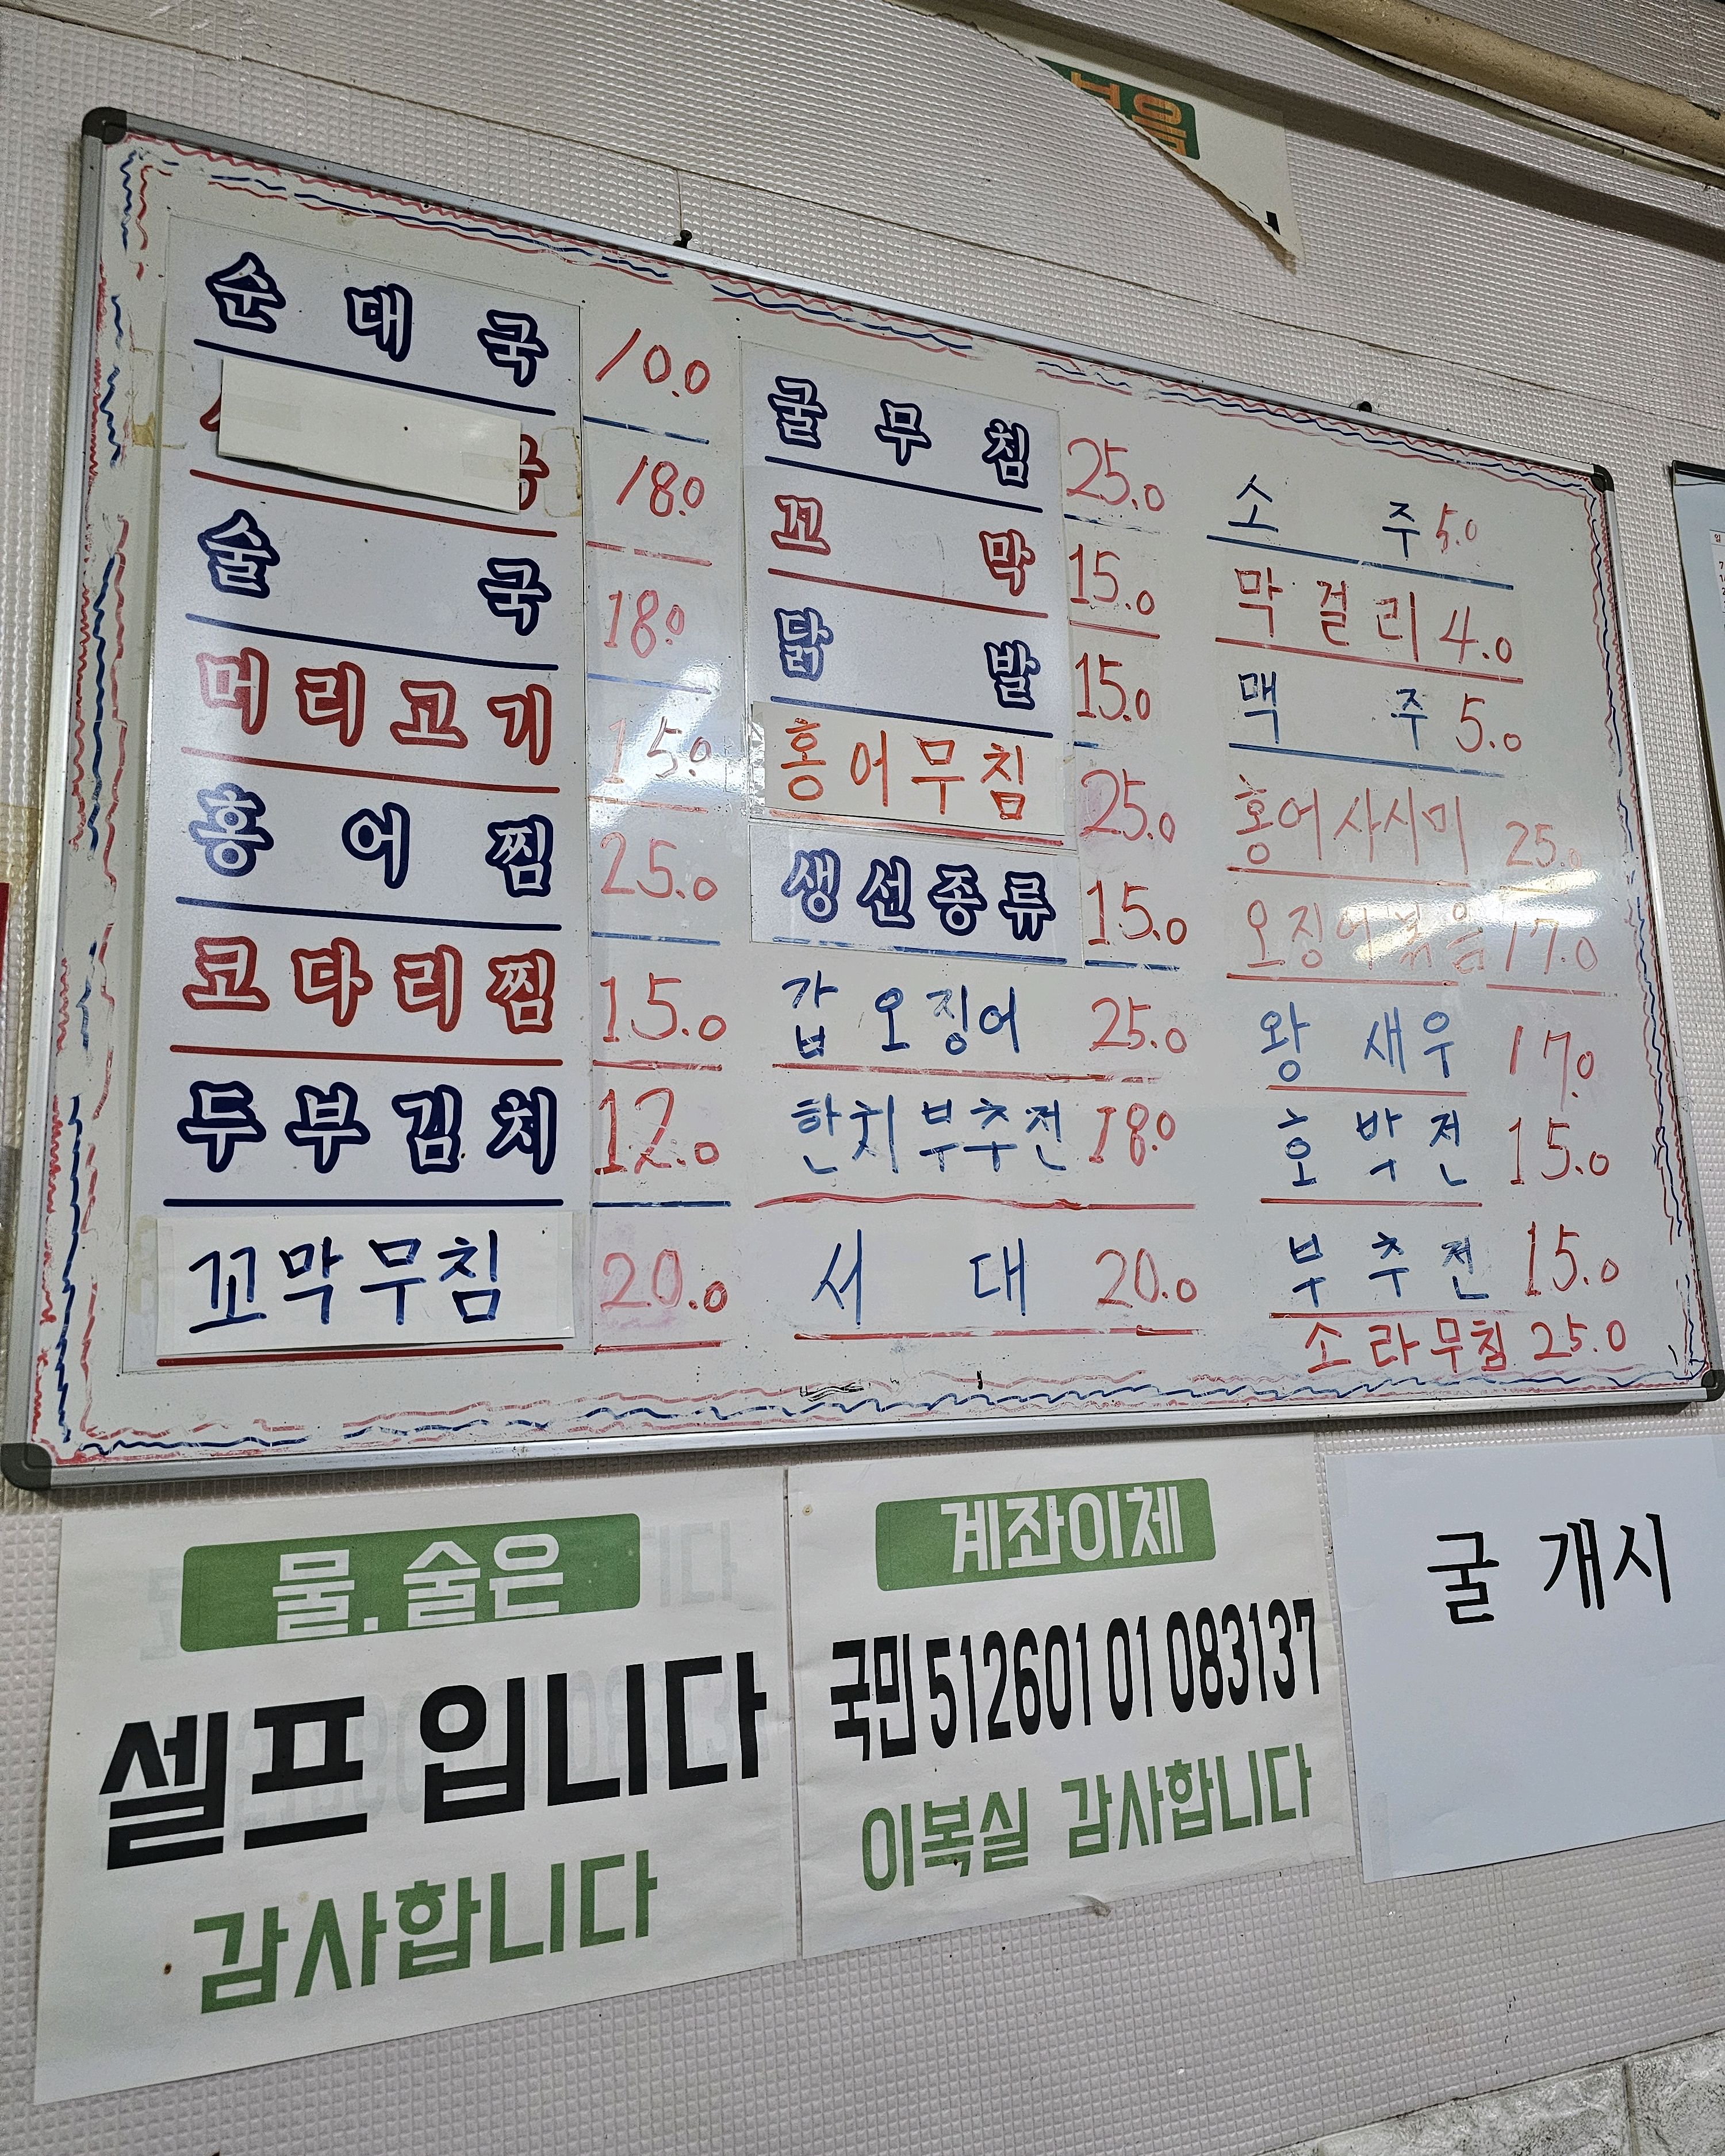 순대국 10.0
18.0
술국 18.0
머리고기 15.0
홍어찜 25.0
코다리찜 15.0
두부김치 12.0
꼬막무침 20.0
굴무침 25.0
꼬막 15.0
닭발 15.0
홍어무침 25.0
생선종류 15.0
갑오징어 25.0
한치부추전 18.0
서대 20.0
소주 5.0
막걸리 4.0
맥주 5.0
홍어사시미 25.0
오징어볶음 17.0
왕새우 17.0
호박전 15.0
부추전 15.0
소라무침 25.0
물.술은
셀프 입니다
감사합니다
계좌이체
국민 512601 01 083137
이복실 감사합니다
굴 개시